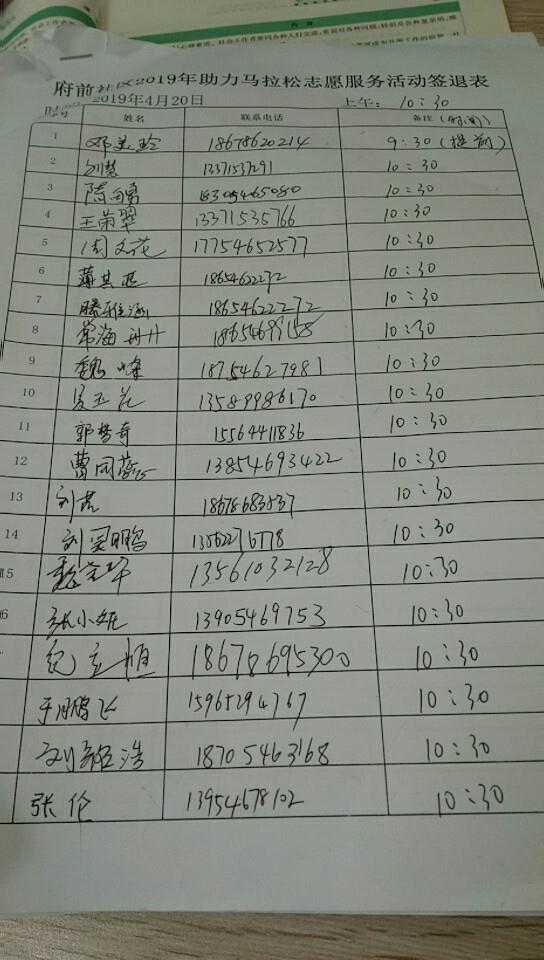 府前社区2019年助力马拉松志愿服务活动签退表
时间 2019年4月20日 上午: 10:30
姓名 联系电话 备注(时间)
1 邓美玲 18678620214 9:30(提前)
2 刘慧 13371537291 10:30
3 陈向勇 18305465080 10:30
4 王荣翠 13371535766 10:30
5 周文花 17754652577 10:30
6 18654622272 10:30
7 滕雅涵 18654622272 10:30
8 常海 18654699158 10:30
9 魏峰 18754627981 10:30
10 夏玉花 13589986170 10:30
11 郭梦奇 15564411836 10:30
12 曹同 13854693422 10:30
13 刘 18678683537 10:30
14 刘 鹏 10:30
15 魏 13561032128 10:30
6 张小妮 13905469753 10:30
纪立恒 18678695300 10:30
于鹏飞 15965294767 10:30
刘 浩 18705463168 10:30
张伦 13954678102 10:30